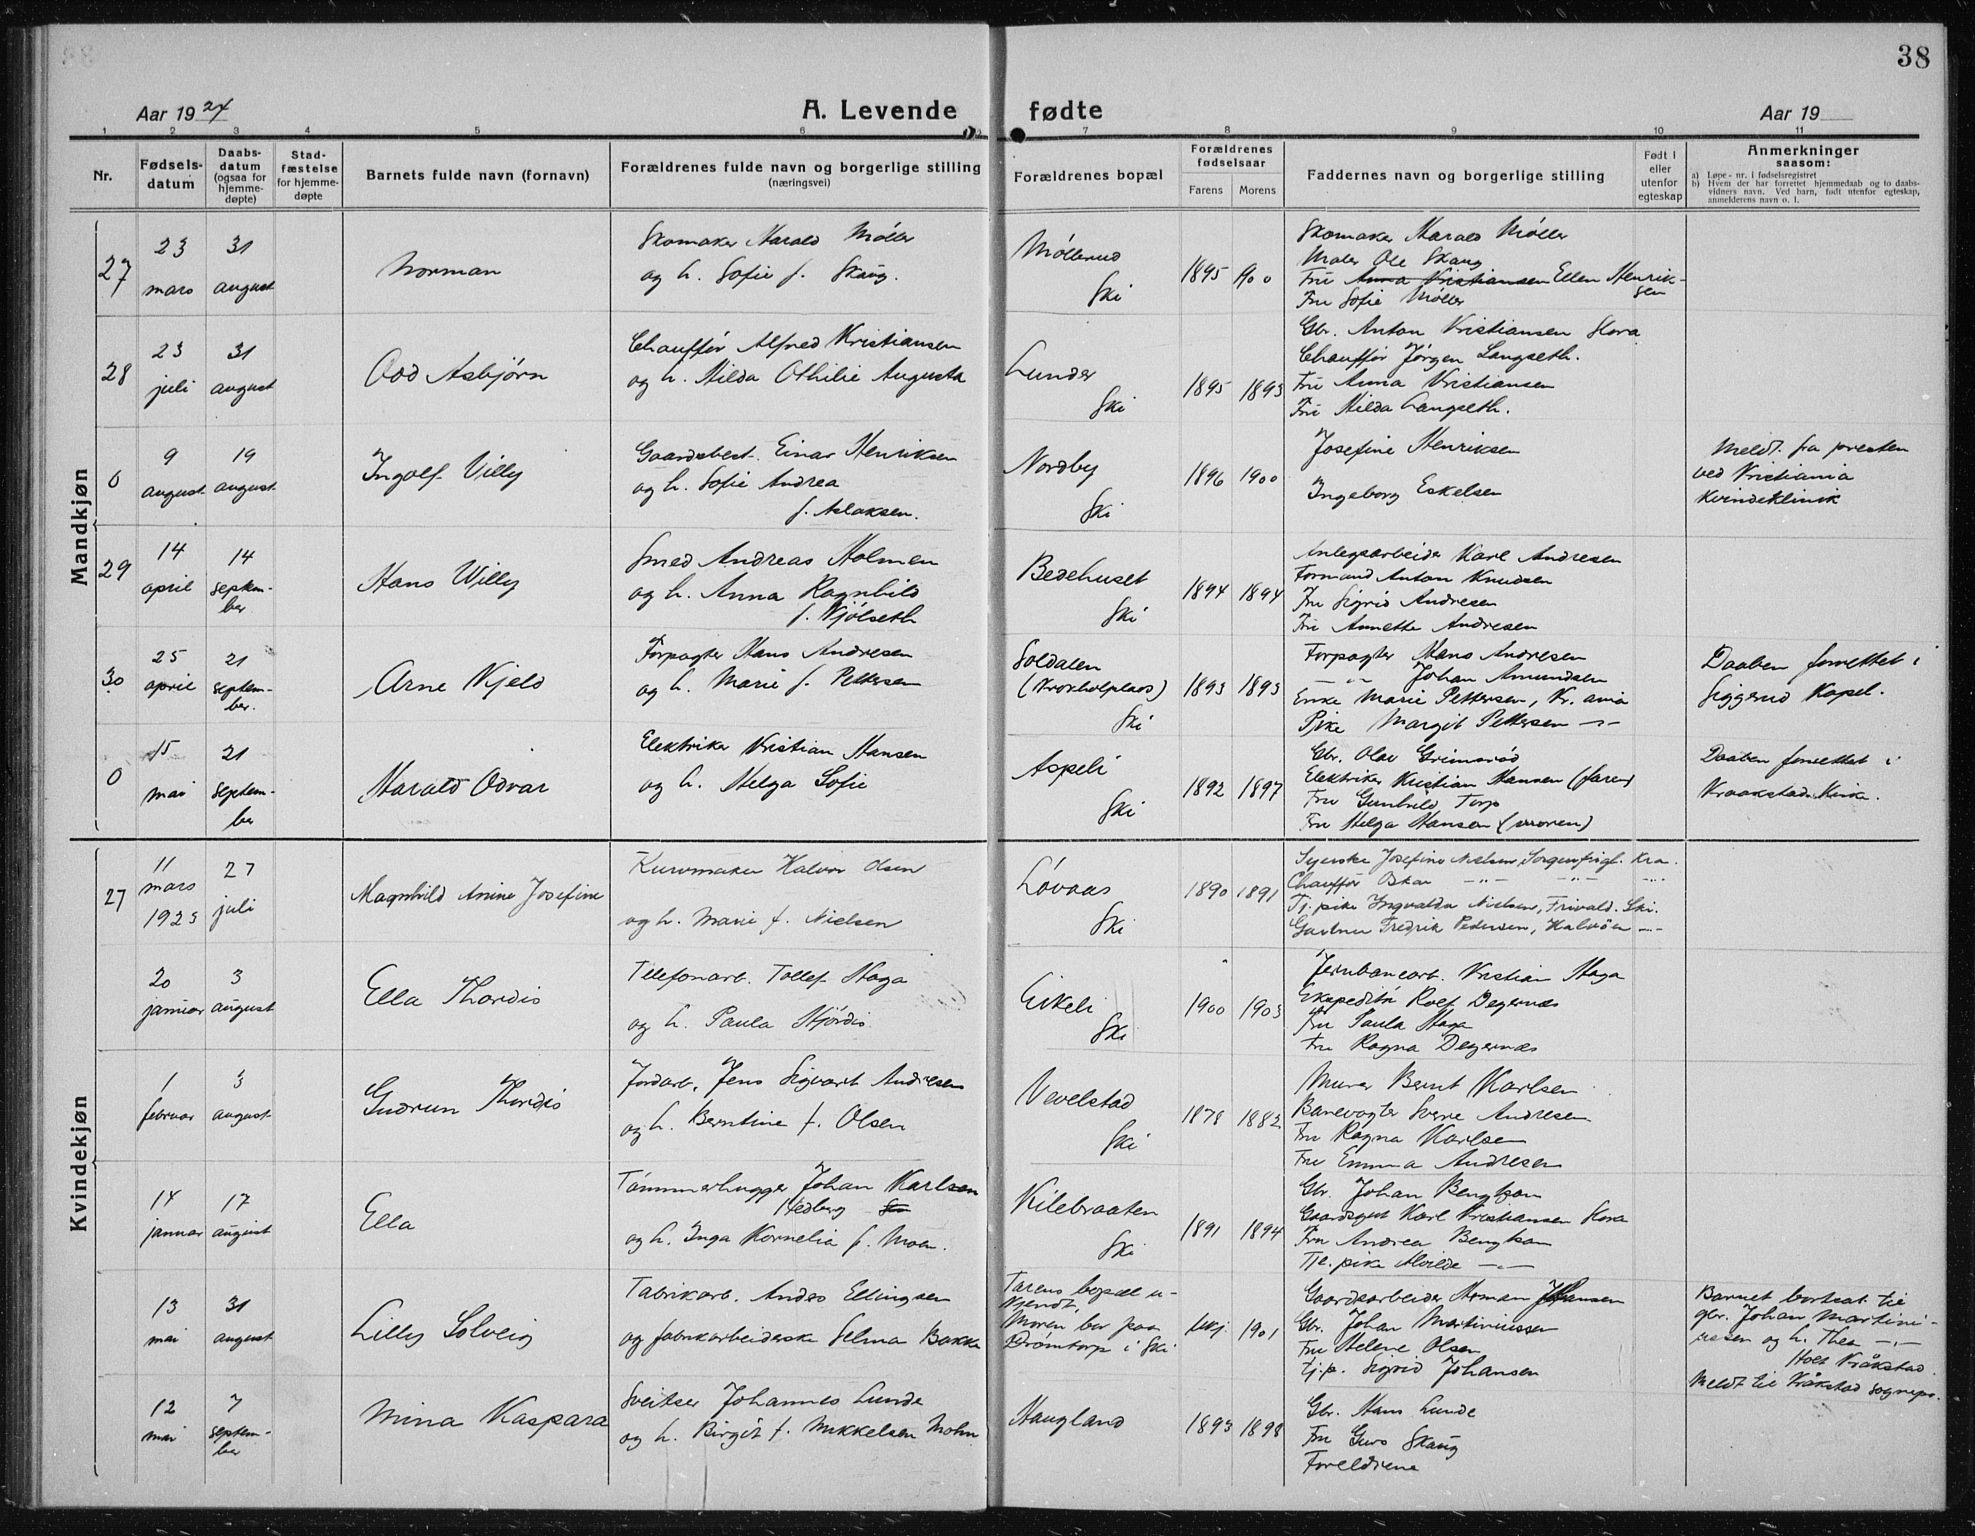 38
Aar 1924
A. Levende fødte
Aar 19
1 2 3 4 5 6 7 8 9 10 11
Nr.
Fødsels-
datum
Daabs-
datum
(ogsaa for
hjemme-
døpte)
Stad-
fæstelse
for hjemme-
døpte
Barnets fulde navn (fornavn)
Forældrenes fulde navn og borgerlige stilling
(næringsvei)
Forældrenes bopæl
Forældrenes
fødselsaar
Farens Morens
Faddernes navn og borgerlige stilling
Født i
eller
utenfor
egteskap
Anmerkninger
saasom:
a) Løpe-nr. i fødselsregistret
b) Hvem der har forrettet hjemmedaab og to daabs-
vidners navn. Ved barn, født utenfor egteskap,
anmelderens navn o. l.
Mandkjøn
27
23
mars
31
august
Norman
Skomaker Harald Møller
og h. Sofie f. Skaug.
Møllerud
Ski
1895 1900
Skomaker Harald Møller
Maler Ole Skaug
Fru Anna Kristiansen Ellen Henrik-
sen
Fru Sofie Møller
28
23
juli
31
august
Odd Asbjørn
Chauffør Alfred Kristiansen
og h. Hilda Othilie Augusta
Lunder
Ski
1895 1893
Gbr. Anton Kristiansen Hora
Chauffør Jørgen Langseth.
Fru Anna Kristiansen
Fru Hilda Langseth.
0
9
august
19
august
Ingolf Villy
Gaardsbest. Einar Henriksen
og h. Sofie Andrea
f. Aslaksen.
Nordby
Ski
1896 1900
Josefine Henriksen
Ingeborg Eskelsen
Meldt fra presten
ved Kristiania
Kvindeklinik
29
14
april
14
septem-
ber
Hans Willy
Smed Andreas Holmen
og h. Anna Ragnhild
f. Kjølseth
Bedehuset
Ski
1894 1894
Anlegsarbeider Karl Andresen
Formand Anton Knudsen
Fru Sigrid Andresen
Fru Annette Andresen
30
25
april
21
septem-
ber.
Arne Kjeld
Forpagter Hans Andresen
og h. Marie f. Pettersen
Soldalen
(Krokholplads)
Ski
1893 1893
Forpagter Hans Andresen
— „ — Johan Amundsen
Enke Marie Pettersen, Kr. ania
Pike Margit Pettersen — „ —
Daaben forrettet i
Siggerud Kapel.
0
15
mai
21
septem-
ber
Harald Odvar
Elektriker Kristian Hansen
og h. Helga Sofie
Aspeli
Ski
1892 1897
Gbr. Olav Grimsrød
Elektriker Kristian Hansen (faren)
Fru Gunhild Torp
Fru Helga Hansen (moren)
Daaben forrettet i
Kraakstad Kirke.
Kvindekjøn
27
11
mars
1923
27
juli
Magnhild Anine Josefine
Kurvmaker Halvor Olsen
og h. Marie f. Nielsen
Løvaas
Ski
1890 1891
Syerske Josefine Nielsen, Sorgenfrigt. Kra.
Chauffør Oskar — „ — — „ — — „ —
Tj. pike Ingvalda Nielsen, Frivald. Ski.
Gartner Fredrik Pedersen, Halvöen — „ —
20
januar
3
august
Ella Thordis
Telefonarb. Tollef Haga
og h. Paula Hjørdis
Eikeli
Ski
1900 1903
Jernbanearb. Kristian Haga
Ekspeditør Rolf Degernæs
Fru Paula Haga
Fru Ragna Degernæs
1
februar
3
august
Gudrun Thordis
Jordarb. Jens Sigvart Andresen
og h. Berntine f. Olsen
Vevelstad
Ski
1878 1882
Murer Bernt Karlsen
Banevogter Sverre Andresen
Fru Ragna Karlsen
Fru Emma Andresen
14
januar
17
august
Ella
Tømmerhugger Johan Karlsen
Hedberg
og h. Inga Kornelia f. Moen.
Kilebraaten
Ski
1891 1894
Gbr. Johan Bengtson
Gaardsgut Karl Kristiansen Hora
Fru Andrea Bengtson
Tje. pike Alvilde — „ —
13
mai
31
august
Lilly Solveig
Fabrikarb. Anders Ellingsen
og fabrikarbeiderske Selma Bakke
Farens bopæl u-
kjendt
Moren bor paa
Drömtorp i Ski
ukj. 1901
Gaardsarbeider Herman Hansen
Gbr. Johan Martiniussen
Fru Helene Olsen
tj.p. Sigrid Johansen
Barnet bortsat til
gbr. Johan Martini-
ussen og h. Thea — „ —
Holt Kråkstad
Meldt til Kråkstad sognepr.
12
mai
7
septem-
ber
Mina Kaspara
Sveitser Johannes Lunde
og h. Birgit f. Mikkelsen Mohn
Haugland
1893 1898
Gbr. Hans Lunde
Fru Guro Skaug
Foreldrene